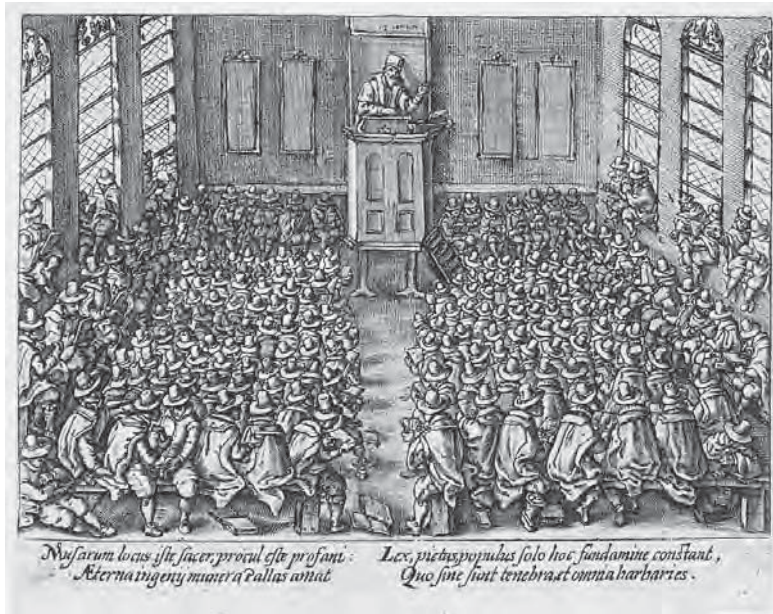 Musarum locus iste sacer, procul este profani:
Æterna ingeny munera Pallas amat
Lex, pietas, populus solo hoc fundamine constant,
Quo sine sunt tenebræ, et omnia barbaries.